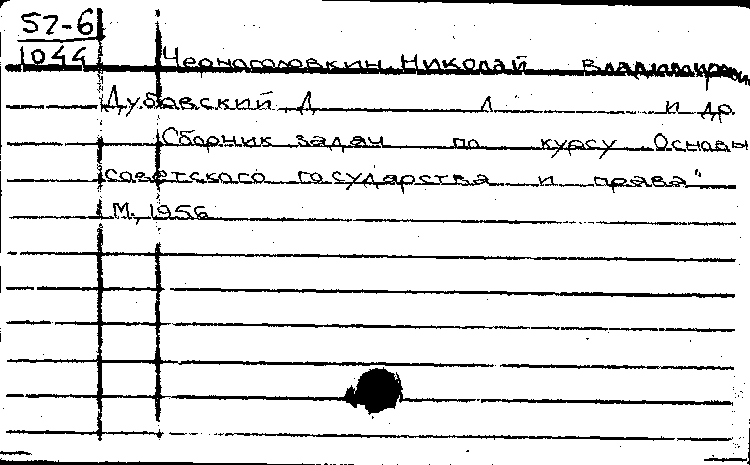 57-6
1044
Черноголовкин Николай Владимирович
Дубавский Д Л и др.
Сборник задач по курсу Основы
советского государства и права"
М., 1956